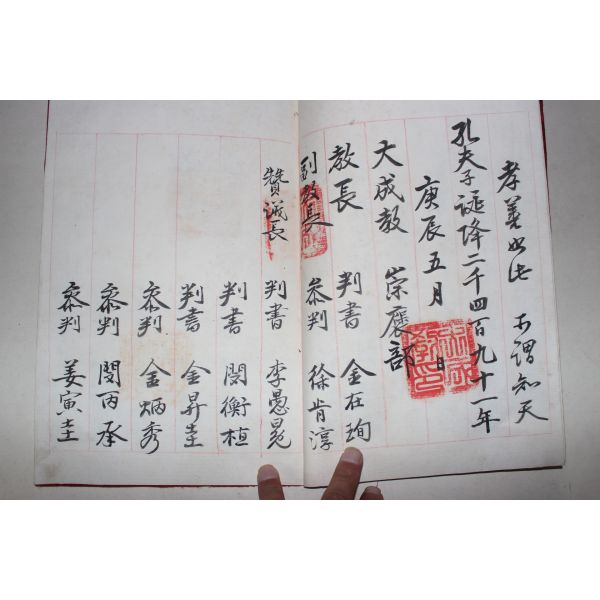 孝善如此 不謂知天
孔夫子誕降二千四百九十一年
庚辰五月 日
大成教 崇褒部
教長 判書 金在珣
副教長 叅判 徐肯淳
贊議長 判書 李愚冕
判書 閔衡植
判書 金昇圭
叅判 金炳秀
叅判 閔丙承
叅判 姜寅圭